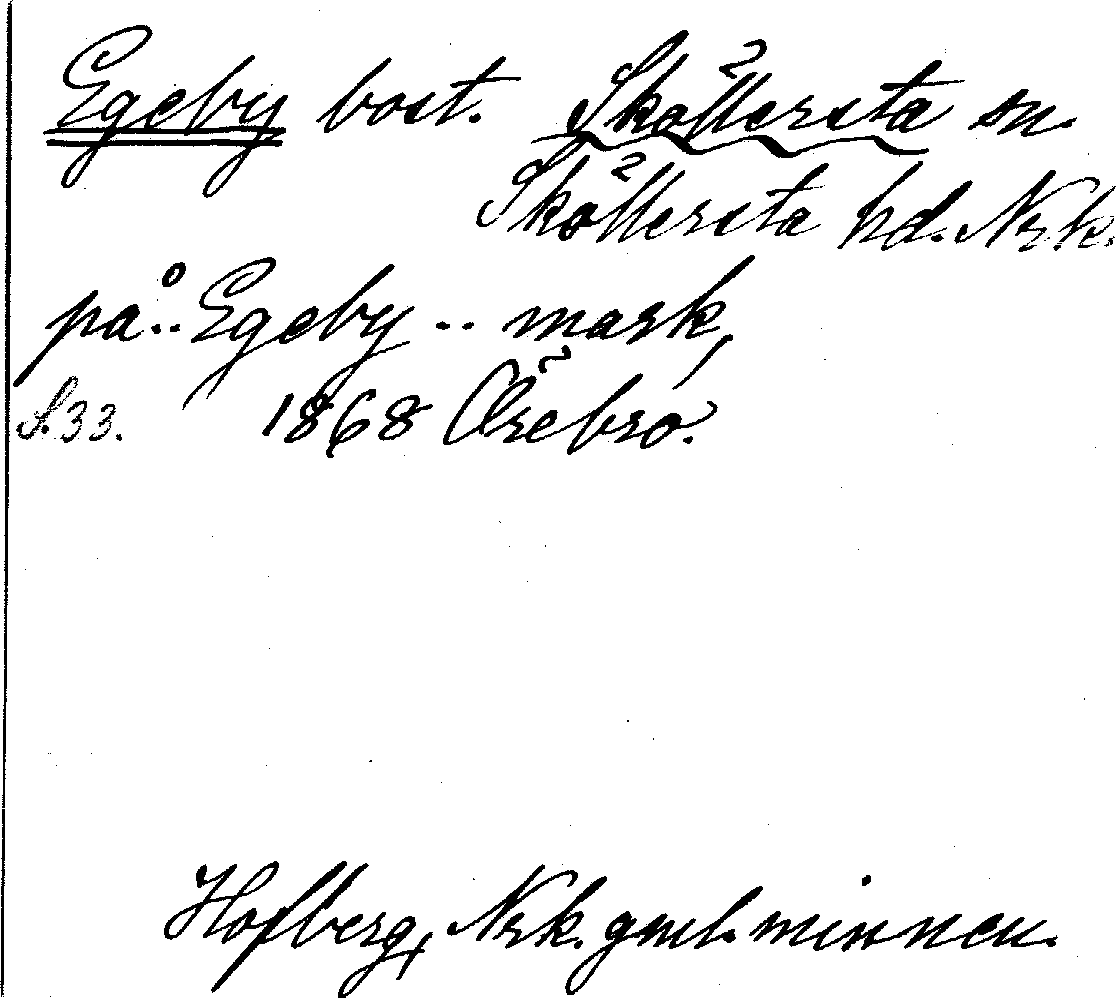 Egeby bost. Sköllersta sn.
Sköllersta hd. Nrk.
på.. Egeby .. mark,
S. 33. 1868 Örebro.
Hofberg, Nrk. gml. minnen.